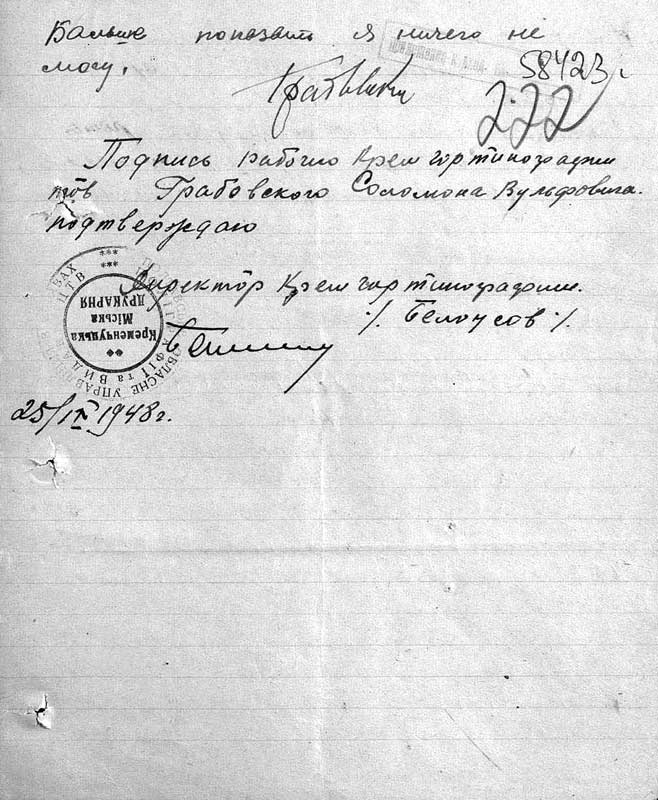 Больше показать я ничего не
могу.
58423
222
Грабовский
Подпись рабочего Крем гортипографии
тов Грабовского Соломона Вульфовича.
подтверждаю
Директор Крем гортипографии.
/. Белоусов /.
Кременчуцька
Міська
ДРУКАРНЯ
ОБЛАСНЕ УПРАВ
та ВИДА
25/IV 1948г.